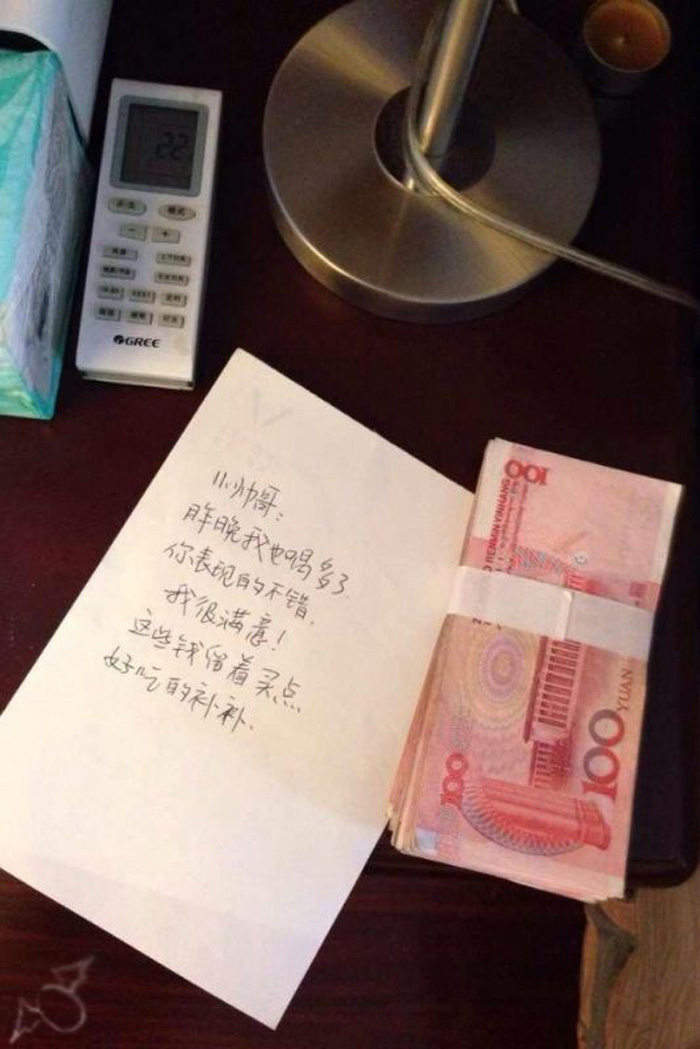 22
GREE
小帅哥:
昨晚我也喝多了
你表现的不错.
我很满意!
这些钱留着买点
好吃的补补.
100
REMIN YINHANG
100
100
YUAN